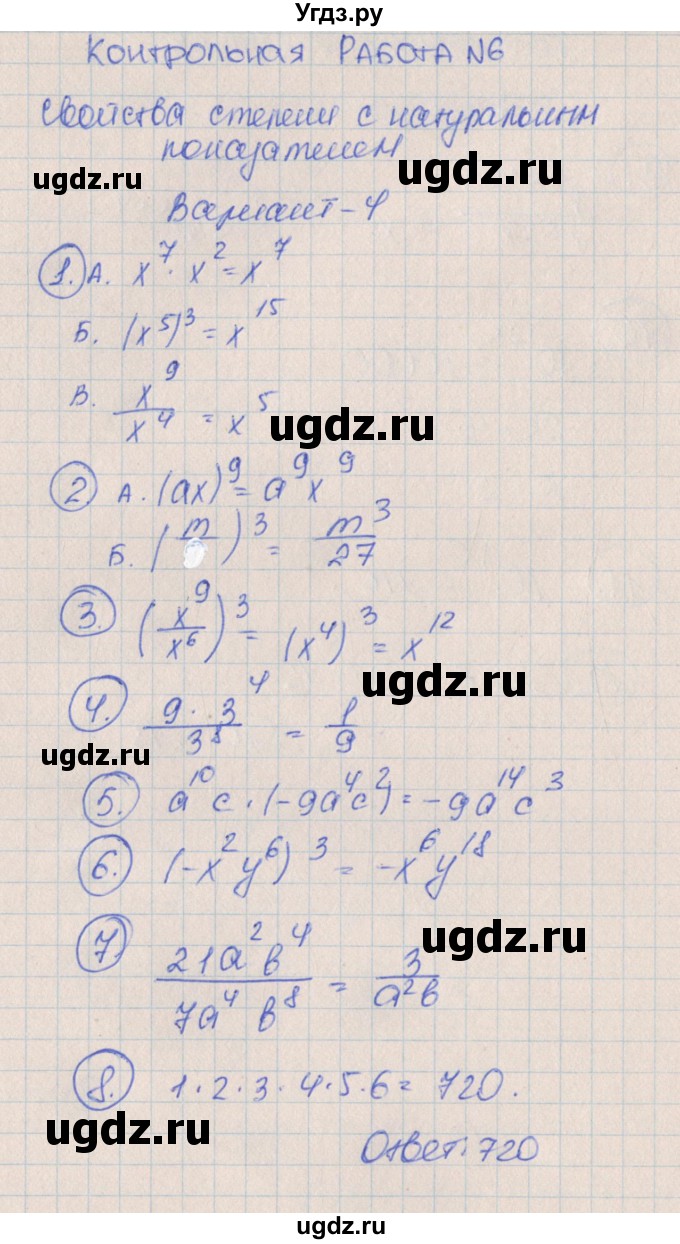 Угдз.ру
Контрольная РАБОТА №6
Свойства степени с натуральным
показателем
ugdz.ru ugdz.ru
Вариант-4
1. А. x⁷ · x² = x⁷
Б. (x⁵)³ = x¹⁵
В. x⁹/x⁴ = x⁵
ugdz.ru
2 А. (ax)⁹ = a⁹x⁹
Б. (m/ )³ = m³/27
3. (x⁹/x⁶)³ = (x⁴)³ = x¹²
ugdz.ru
4. 9 · 3⁴/3⁸ = 1/9
ugdz.ru
5. a¹⁰c · (-9a⁴c²) = -9a¹⁴c³
6. (-x²y⁶)³ = -x⁶y¹⁸
ugdz.ru
7. 21a²в⁴/7a⁴в⁸ = 3/a²в
8. 1·2·3·4·5·6 = 720.
ugdz.ru
Ответ: 720
ugdz.ru